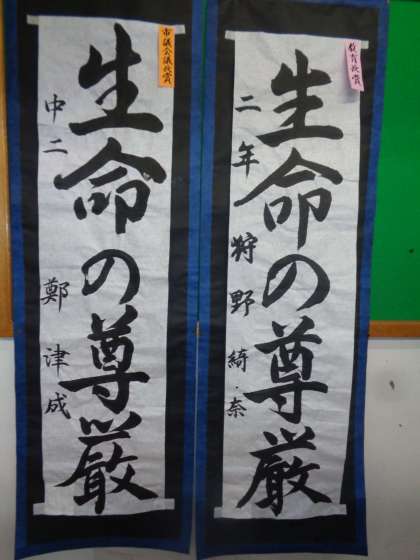 生命の尊厳
二年 狩野 綺・奈
生命の尊厳
中二 鄭 津成
市議会議長賞